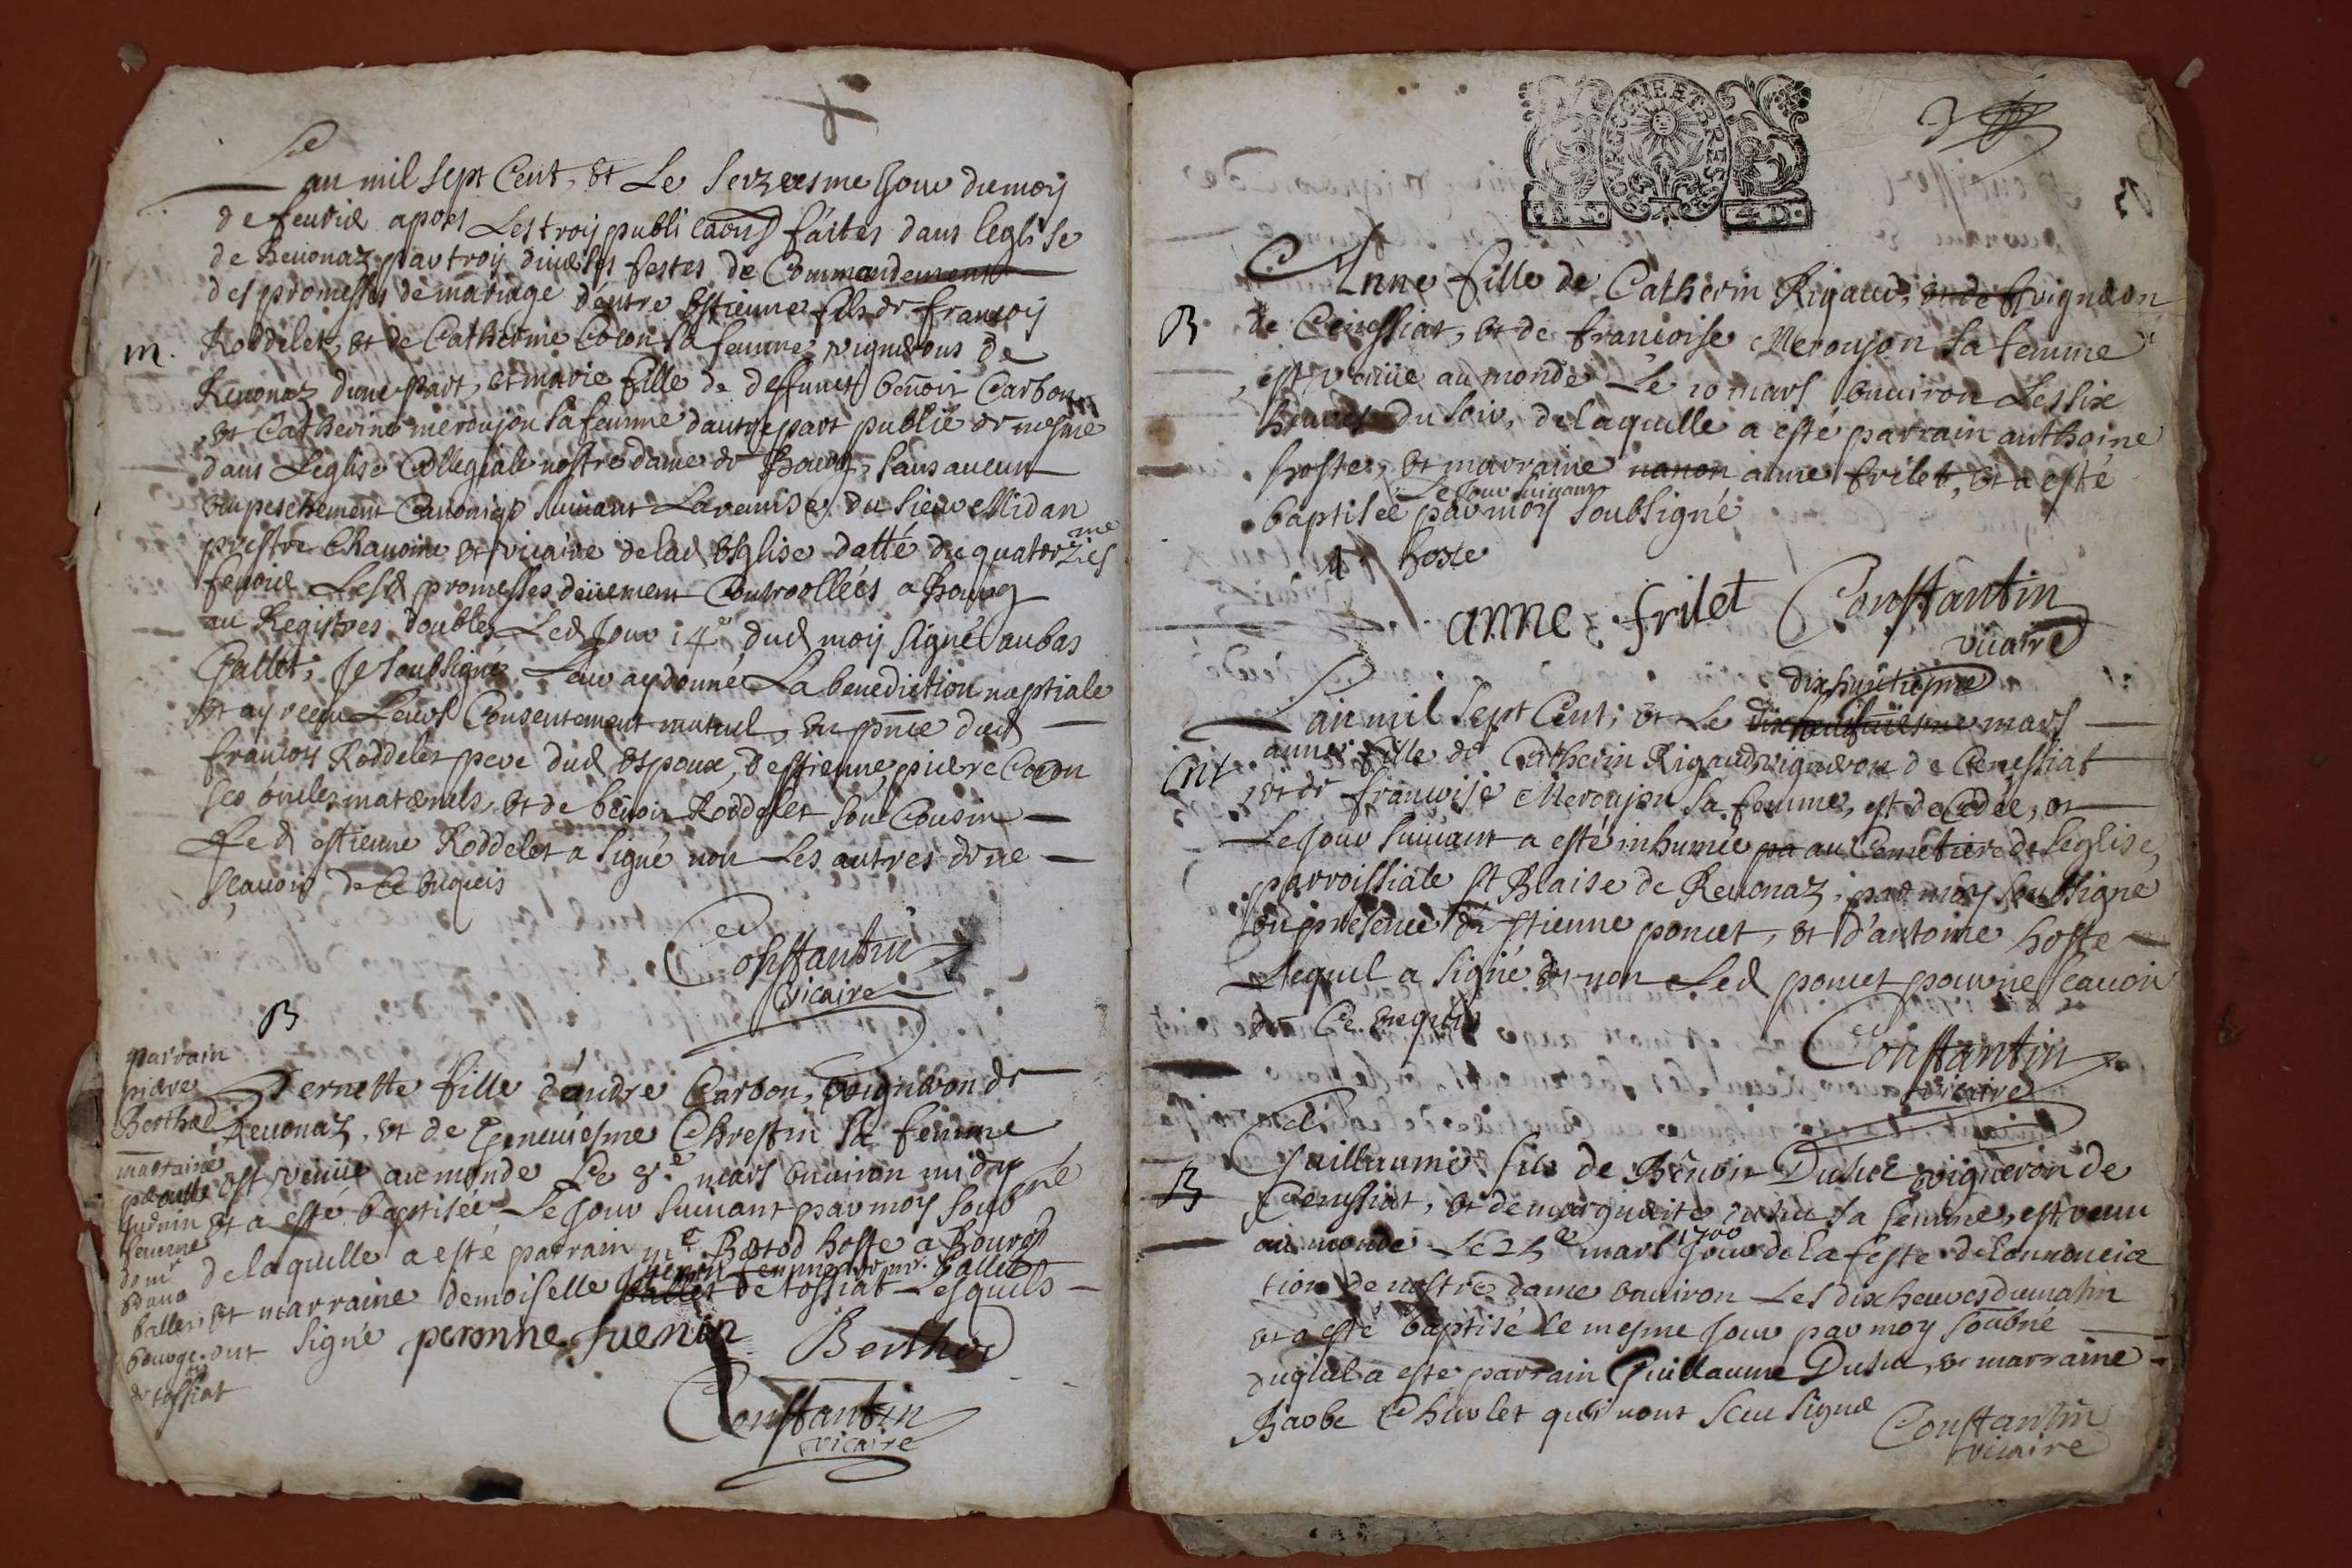 Lan mil sept Cent, et Le seizeiesme Jour du mois
de feuvrier apres Les trois publicaons faites dans leglise
de Reuonaz par trois diuerses festes de Commandement
des promesses de mariage dentre estienne fils de francois
m. Roddelet, et de Catherine Colon sa femme vignerons de
Reuonaz dune part, et marie fille de deffunct benoit Carbon
et Catherine meroujon sa femme dautre part publié de mesme
dans Leglise Collegiale nostre dame de bourg, sans aucun
empeschement Canoniq suiuant La remise du sieur Midan
prestre Chanoine et vicaire de lad Esglise datté du quatorziesme
feurier Lesd promesses deüement Controollées a bourg
au Registres doubles Led Jour 14e dud mois signé au bas
Gallet, Je soubsigné Leur ay donné La benediction nuptiale
et ay receu Leurs Consentement mutuel, en pnce dud
francois Roddelet pere dud Espoux, destienne, pierre Colon
ses oncles maternels, et de benoit Roddelet son Cousin
Le d estienne Roddelet a signé non Les autres de ne
scauoir de Ce enquis
Constantin
vicaire
B
parrain
pierre
Berthod
marraine
peronne
Juenin
femme
domr
Edana
Gallet
bourge
de tossiat
Pernette fille dandre Carbon, vigneron de
Reuonaz, et de Geneuiesme Chrestin sa femme
est venüe au monde Le 8e mars enuiron midy
et a esté baptisée Le Jour suiuant par moy soubné
de laquelle a esté parrain me Bertod hoste a bourg
Juenin femme de mr. Gallet
et marraine demoiselle Gallet de tossiat Lesquels
ont signé peronne Juenin Berthod
Constantin
vicaire
GNE ET BRES
4.D.
3
Anne fille de Catherin Rigaud, et de vigneron
B de Ceuessiat, et de francoise Meroujon sa femme
est venüe au monde Le 10 mars enuiron Les six
heures du soir, de laquelle a esté parrain anthoine
hoste, et marraine nanon anne frilet, et a esté
Le Jour suiuant
baptisée par moy soubsigné
A hoste
anne frilet Constantin
vicaire
dixhuictiesme
Lan mil sept Cent, et Le mars
Ent anne fille de Catherin Rigaud vigneron de Ceuessiat
et de francoise Meroujon sa femme, est decedée, et
Le Jour suiuant a esté inhumée pa au Cemetiere de leglise
parroissiale st Blaise de Reuonaz, par moy soubsigné
en presence destienne poncet, et d'antoine hoste
Lequel a signé et non Led poncet pour ne scauoir
de Ce enquis
Constantin
vicaire
B Guillaume fils de Benoit Dusuc vigneron de
Ceuessiat, et de marguerite sa femme, est venu
1700
au monde Le 25e mars Jour de la feste de lannoncia
tion de nostre dame enuiron Les dix heures du matin
et a esté baptisé le mesme Jour par moy soubné
duquel a esté parrain Guillaume Dusuc, et marraine
Barbe Churlet qui nont sceu signer
Constantin
vicaire